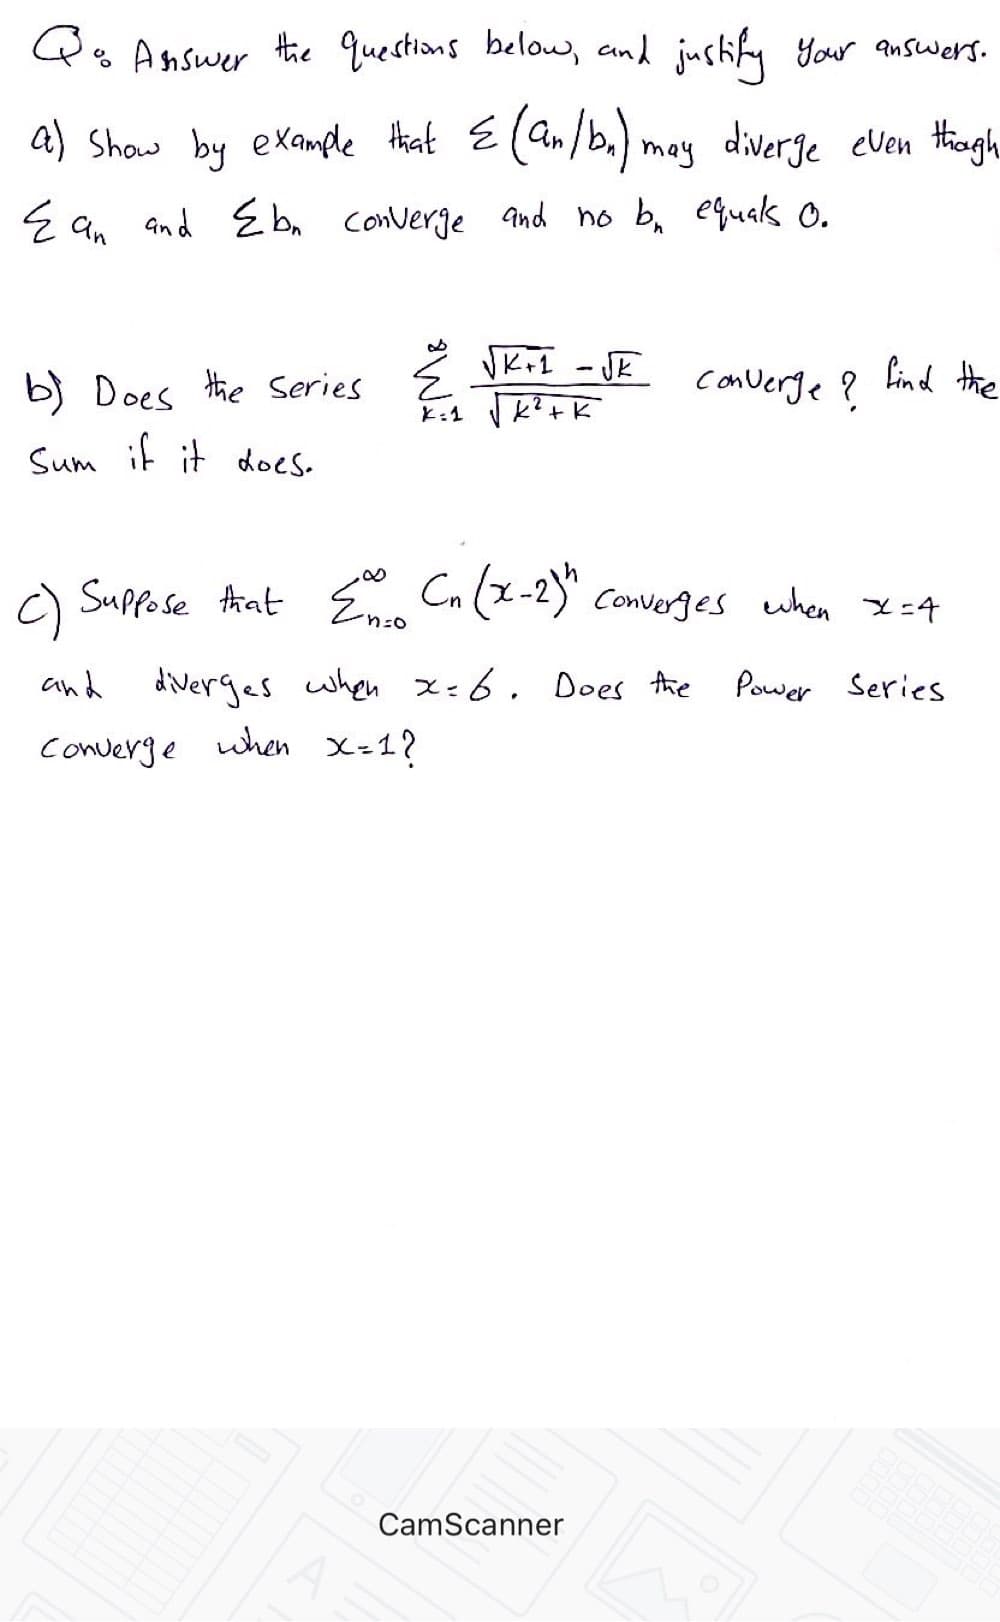 Q: Answer the questions below, and justify your answers.
a) Show by example that Σ(an/bn) may diverge even thogh
Σ an and Σ bn converge and no bn equals 0.
b) Does the series ∞ Σ K=1 √K+1 - √K / √K²+K converge? find the
Sum if it does.
c) Suppose that Σ∞n=0 Cn (x-2)ⁿ converges when x=4
and diverges when x=6. Does the Power Series
Converge when x=1?
CamScanner